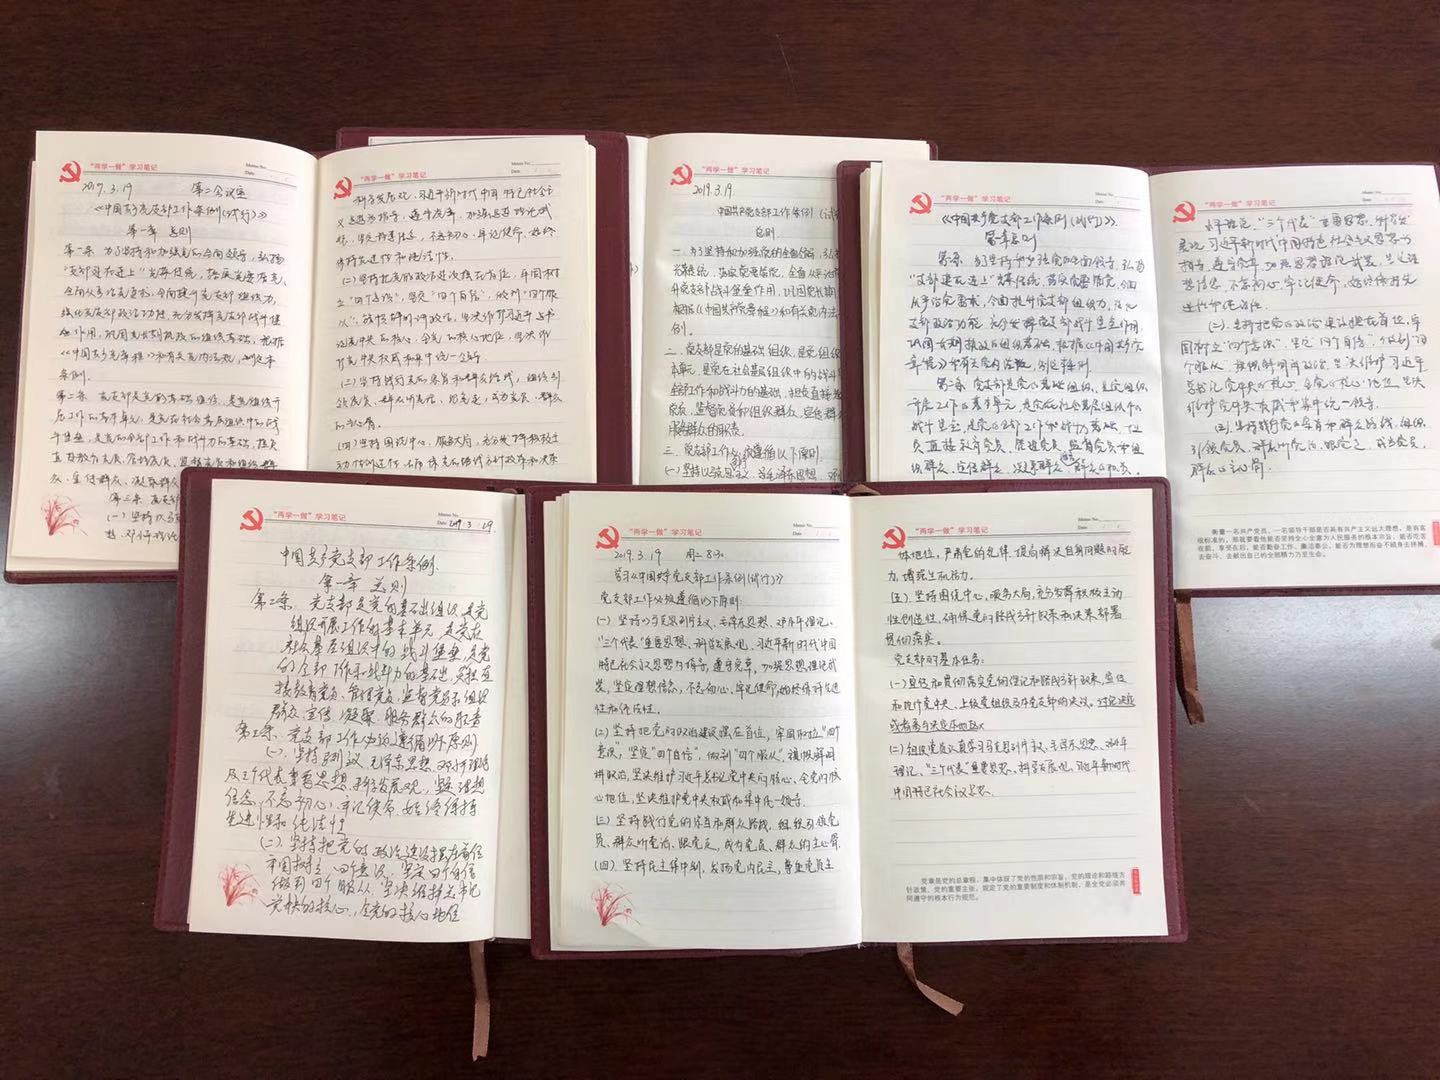 "两学一做"学习笔记
Memo No.
Date
2019.3.19 第二会议室
《中国共产党支部工作条例(试行)》
第一章 总则
第一条 为了坚持和加强党的全面领导，弘扬
"支部建在连上"光荣传统，落实党要管党、
全面从严治党要求，全面提升党支部组织力，
强化党支部政治功能，充分发挥党支部战斗堡
垒作用，巩固党长期执政的组织基础，根据
《中国共产党章程》和有关党内法规，制定本
条例。
第二条 党支部是党的基础组织，是党组织开
展工作的基本单元，是党在社会基层组织中的战
斗堡垒，是党的全部工作和战斗力的基础，担负
直接教育党员、管理党员、监督党员和组织群
众、宣传群众、凝聚群
第三条 党支部
(一)坚持以马
想、邓小平理论
"两学一做"学习笔记
Memo No.
Date
科学发展观、习近平新时代中国特色社会主
义思想为指导，遵守党章，加强思想理论武
装，坚定理想信念，不忘初心、牢记使命，始终
保持先进性和纯洁性。
(二)坚持把党的政治建设摆在首位，牢固树
立"四个意识"，坚定"四个自信"，做到"四个服
从"，旗帜鲜明讲政治，坚决维护习近平总书
记党中央的核心、全党的核心地位，坚决维
护党中央权威和集中统一领导。
(三)坚持践行党的宗旨和群众路线，组织引
领党员、群众听党话、跟党走，成为党员、群众
的主心骨。
(四)坚持围绕中心、服务大局，充分发挥积极主
动性创造性，确保党的路线方针政策和决策
"两学一做"学习笔记
2019.3.19.
中国共产党支部工作条例(试
总则
一、为了坚持和加强党的全面领导，弘扬
光荣传统，落实党要管党，全面从严治
升党支部战斗堡垒作用，巩固党长期
根据《中国共产党章程》和有关党内法
例。
二、党支部是党的基础组织，是党组织
本单元，是党在社会基层组织中的战斗
全部工作和战斗力的基础，担负直接
党员、监督党员和组织群众、宣传群
服务群众的职责。
三、党支部工作必须遵循以下原则。
(一)坚持以马列主义、毛泽东思想、邓
"两学一做"学习笔记
Memo No.
Date
《中国共产党支部工作条例(试行)》
第一章总则
第一条 为了坚持和加强党的全面领导，弘扬
"支部建在连上"光荣传统，落实党要管党、全面
从严治党要求，全面提升党支部组织力，强化
支部政治功能，充分发挥党支部战斗堡垒作用，
巩固党长期执政的组织基础，根据《中国共产党
章程》和有关党内法规，制定条例。
第二条 党支部是党的基础组织，是党组织
开展工作的基本单元，是党在社会基层组织中的
战斗堡垒，是党的全部工作和战斗力的基础，担
负直接教育党员、管理党员、监督党员和组
织群众、宣传群众、凝聚群众、服务群众的职责。
"两学一做"学习笔记
Memo No.
Date
理论、"三个代表"重要思想、科学发
展观、习近平新时代中国特色社会主义思想为
指导，遵守党章，加强思想理论武装，坚定理
想信念，不忘初心、牢记使命，始终保持先
进性和纯洁性。
(二)坚持把党的政治建设摆在首位，牢
固树立"四个意识"，坚定"四个自信"，做到"四
个服从"，旗帜鲜明讲政治，坚决维护习近平
总书记党中央的核心、全党的核心地位，坚决
维护党中央权威和集中统一领导。
(三)坚持践行党的宗旨和群众路线，组织
引领党员、群众听党话、跟党走，成为党员、
群众的主心骨。
衡量一名共产党员、一名领导干部是否具有共产主义远大理想，是有客
观标准的，那就要看他能否坚持全心全意为人民服务的根本宗旨，能否吃苦
在前、享受在后，能否勤奋工作、廉洁奉公，能否为理想而奋不顾身去拼搏、
去奋斗、去献出自己的全部精力乃至生命。
"两学一做"学习笔记
Memo No.
Date 2019.3.29.
中国共产党支部工作条例.
第一章 总则
第二条、党支部是党的基础组织，是党
组织开展工作的基本单元，是党在
社会基层组织中的战斗堡垒，是党
的全部工作和战斗力的基础，担负直
接教育党员、管理党员、监督党员和组织
群众、宣传、凝聚、服务群众的职责
第三条、党支部工作必须遵循以下原则
(一)、坚持马列主义、毛泽东思想、邓小平理论
及三个代表重要思想、科学发展观，坚定理想
信念，不忘初心，牢记使命，始终保持
先进性和纯洁性
(二)、坚持把党的政治建设摆在首位
牢固树立四个意识，坚定四个自信
做到四个服从，坚决维护总书记
党中央的核心，全党的核心地位
"两学一做"学习笔记
Memo No.
Date
2019.3.19 周二 8:30
学习《中国共产党支部工作条例(试行)》
党支部工作必须遵循以下原则:
(一)坚持以马克思列宁主义、毛泽东思想、邓小平理论、
"三个代表"重要思想、科学发展观、习近平新时代中国
特色社会主义思想为指导，遵守党章，加强思想理论武
装，坚定理想信念，不忘初心、牢记使命，始终保持先进
性和纯洁性。
(二)坚持把党的政治建设摆在首位，牢固树立"四个
意识"，坚定"四个自信"，做到"四个服从"，旗帜鲜明
讲政治，坚决维护习近平总书记党中央的核心、全党的核
心地位，坚决维护党中央权威和集中统一领导。
(三)坚持践行党的宗旨和群众路线，组织引领党
员、群众听党话、跟党走，成为党员、群众的主心骨。
(四)坚持民主集中制，发扬党内民主，尊重党员主
"两学一做"学习笔记
Memo No.
Date
体地位，严肃党的纪律，提高解决自身问题的能
力，增强生机活力。
(五)坚持围绕中心、服务大局，充分发挥积极主动
性创造性，确保党的路线方针政策和决策部署
贯彻落实。
党支部的基本任务:
(一)宣传和贯彻落实党的理论和路线方针政策，宣传
和执行党中央、上级党组织及本党支部的决议。讨论决定
或者参与决定
(二)组织党员认真学习马克思列宁主义、毛泽东思想、邓小平
理论、"三个代表"重要思想、科学发展观、习近平新时代
中国特色社会主义思想.
党章是党的总章程，集中体现了党的性质和宗旨、党的理论和路线方
针政策、党的重要主张，规定了党的重要制度和体制机制，是全党必须共
同遵守的根本行为规范。